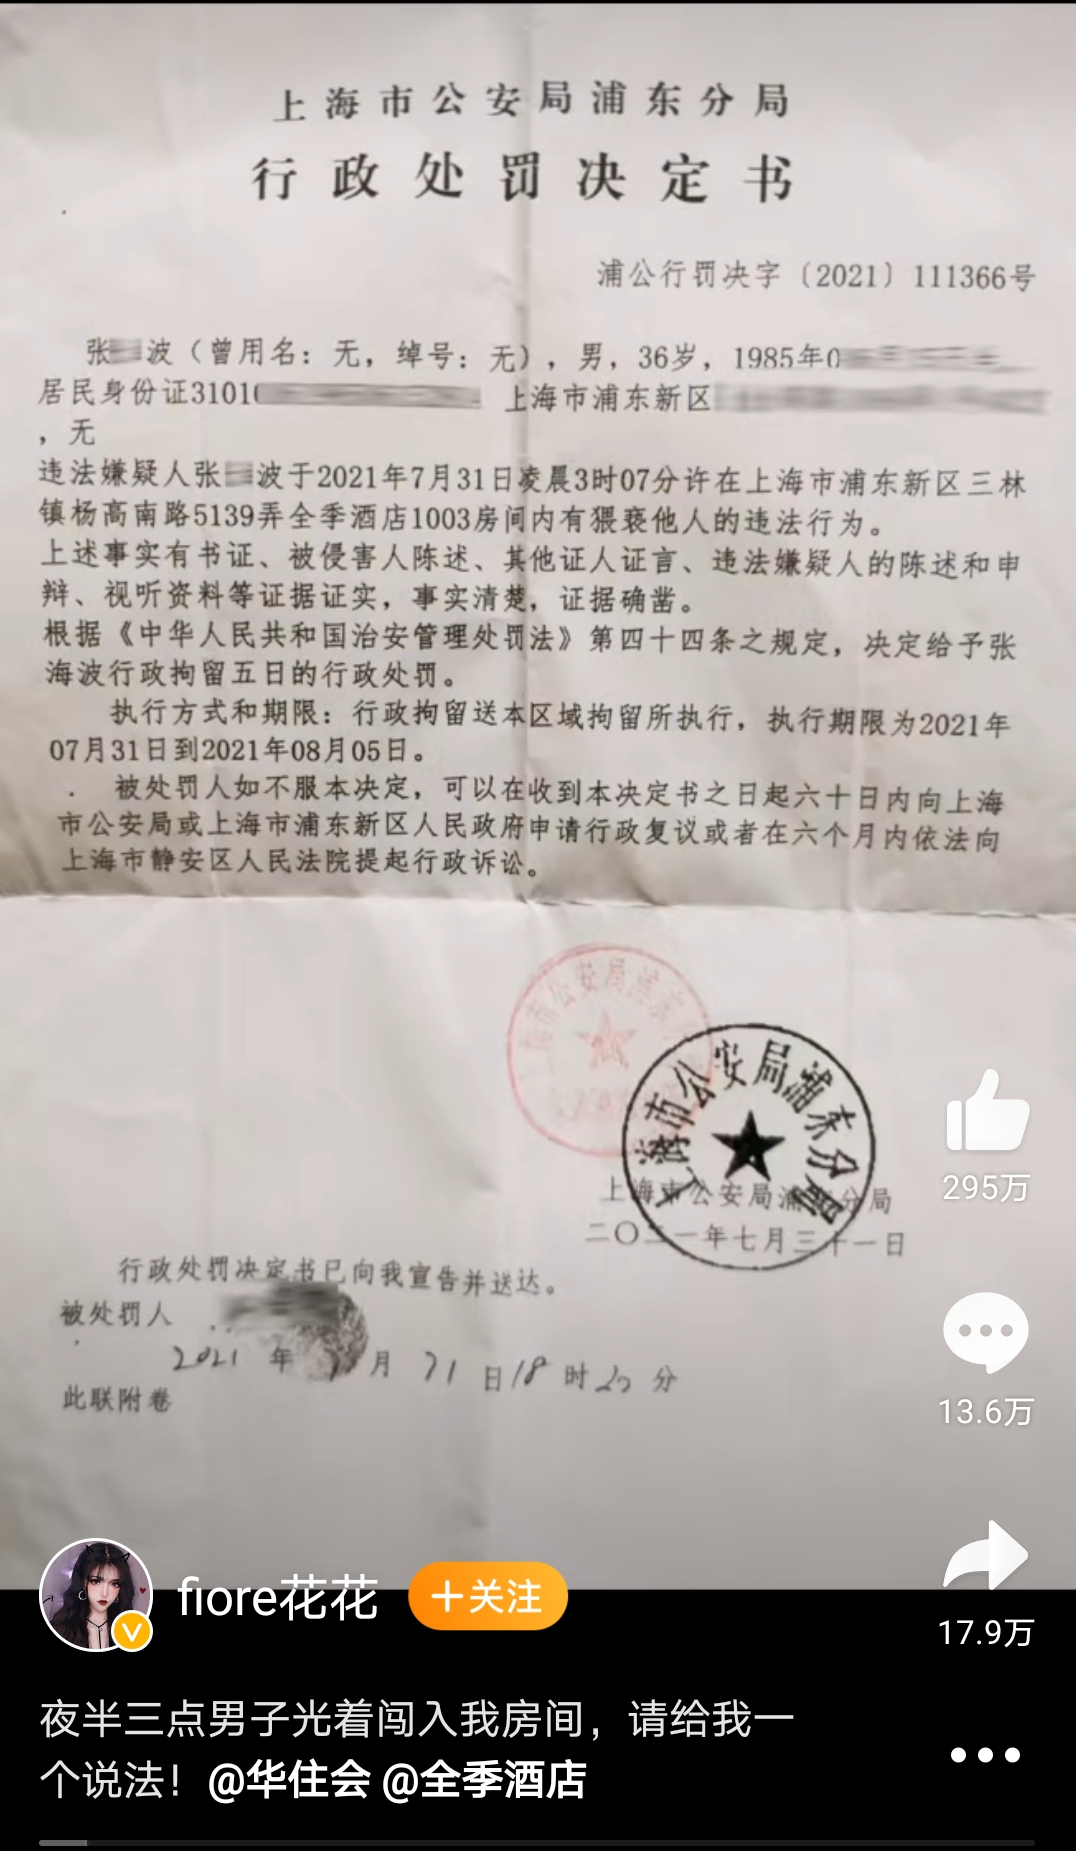 上海市公安局浦东分局
行政处罚决定书
浦公行罚决字〔2021〕111366号
张 波（曾用名：无，绰号：无），男，36岁，1985年0
居民身份证3101 上海市浦东新区
，无
违法嫌疑人张 波于2021年7月31日凌晨3时07分许在上海市浦东新区三林
镇杨高南路5139弄全季酒店1003房间内有猥亵他人的违法行为。
上述事实有书证、被侵害人陈述、其他证人证言、违法嫌疑人的陈述和申
辩、视听资料等证据证实，事实清楚，证据确凿。
根据《中华人民共和国治安管理处罚法》第四十四条之规定，决定给予张
海波行政拘留五日的行政处罚。
执行方式和期限：行政拘留送本区域拘留所执行，执行期限为2021年
07月31日到2021年08月05日。
被处罚人如不服本决定，可以在收到本决定书之日起六十日内向上海
市公安局或上海市浦东新区人民政府申请行政复议或者在六个月内依法向
上海市静安区人民法院提起行政诉讼。
上海市公安局浦东分局
上海市公安局浦东分局
二〇二一年七月三十一日
行政处罚决定书已向我宣告并送达。
被处罚人
2021 年 月 31 日 18 时 20 分
此联附卷
295万
13.6万
17.9万
fiore花花
+关注
夜半三点男子光着闯入我房间，请给我一
个说法！@华住会 @全季酒店